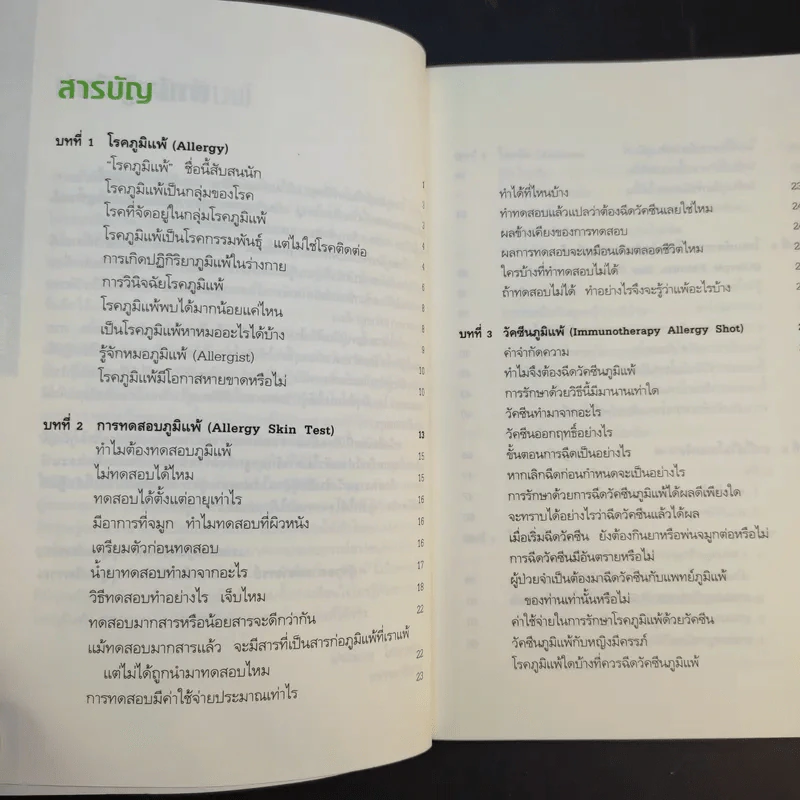 สารบัญ
บทที่ 1 โรคภูมิแพ้ (Allergy)
"โรคภูมิแพ้" ชื่อนี้สับสนนัก 1
โรคภูมิแพ้เป็นกลุ่มของโรค
โรคที่จัดอยู่ในกลุ่มโรคภูมิแพ้
โรคภูมิแพ้เป็นโรคกรรมพันธุ์ แต่ไม่ใช่โรคติดต่อ
การเกิดปฏิกิริยาภูมิแพ้ในร่างกาย
การวินิจฉัยโรคภูมิแพ้
โรคภูมิแพ้พบได้มากน้อยแค่ไหน
เป็นโรคภูมิแพ้หาหมออะไรได้บ้าง
รู้จักหมอภูมิแพ้ (Allergist) 9
โรคภูมิแพ้มีโอกาสหายขาดหรือไม่ 10
10
บทที่ 2 การทดสอบภูมิแพ้ (Allergy Skin Test) 13
ทำไมต้องทดสอบภูมิแพ้ 15
ไม่ทดสอบได้ไหม 15
ทดสอบได้ตั้งแต่อายุเท่าไร 16
มีอาการที่จมูก ทำไมทดสอบที่ผิวหนัง 16
เตรียมตัวก่อนทดสอบ 16
น้ำยาทดสอบทำมาจากอะไร 17
วิธีทดสอบทำอย่างไร เจ็บไหม 18
ทดสอบมากสารหรือน้อยสารจะดีกว่ากัน 22
แม้ทดสอบมากสารแล้ว จะมีสารที่เป็นสารก่อภูมิแพ้ที่เราแพ้
แต่ไม่ได้ถูกนำมาทดสอบไหม 22
การทดสอบมีค่าใช้จ่ายประมาณเท่าไร 23
ทำได้ที่ไหนบ้าง 23
ทำทดสอบแล้วแปลว่าต้องฉีดวัคซีนเลยใช่ไหม
ผลข้างเคียงของการทดสอบ
ผลการทดสอบจะเหมือนเดิมตลอดชีวิตไหม
ใครบ้างที่ทำทดสอบไม่ได้
ถ้าทดสอบไม่ได้ ทำอย่างไรจึงจะรู้ว่าแพ้อะไรบ้าง
บทที่ 3 วัคซีนภูมิแพ้ (Immunotherapy Allergy Shot)
คำจำกัดความ
ทำไมจึงต้องฉีดวัคซีนภูมิแพ้
การรักษาด้วยวิธีนี้มีมานานเท่าใด
วัคซีนทำมาจากอะไร
วัคซีนออกฤทธิ์อย่างไร
ขั้นตอนการฉีดเป็นอย่างไร
หากเลิกฉีดก่อนกำหนดจะเป็นอย่างไร
การรักษาด้วยการฉีดวัคซีนภูมิแพ้ได้ผลดีเพียงใด
จะทราบได้อย่างไรว่าฉีดวัคซีนแล้วได้ผล
เมื่อเริ่มฉีดวัคซีน ยังต้องกินยาหรือพ่นจมูกต่อหรือไม่
การฉีดวัคซีนมีอันตรายหรือไม่
ผู้ป่วยจำเป็นต้องมาฉีดวัคซีนกับแพทย์ภูมิแพ้
ของท่านเท่านั้นหรือไม่
ค่าใช้จ่ายในการรักษาโรคภูมิแพ้ด้วยวัคซีน
วัคซีนภูมิแพ้กับหญิงมีครรภ์
โรคภูมิแพ้ใดบ้างที่ควรฉีดวัคซีนภูมิแพ้